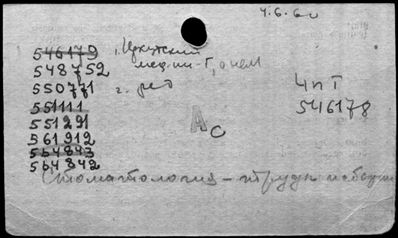 4.6.60
546179
548752
550771
551111
551291
561912
564843
564842
1. Иркутский
мед. ин-т,
2. ред
4пТ
546178
Ас
Стоматология – труды и сборн